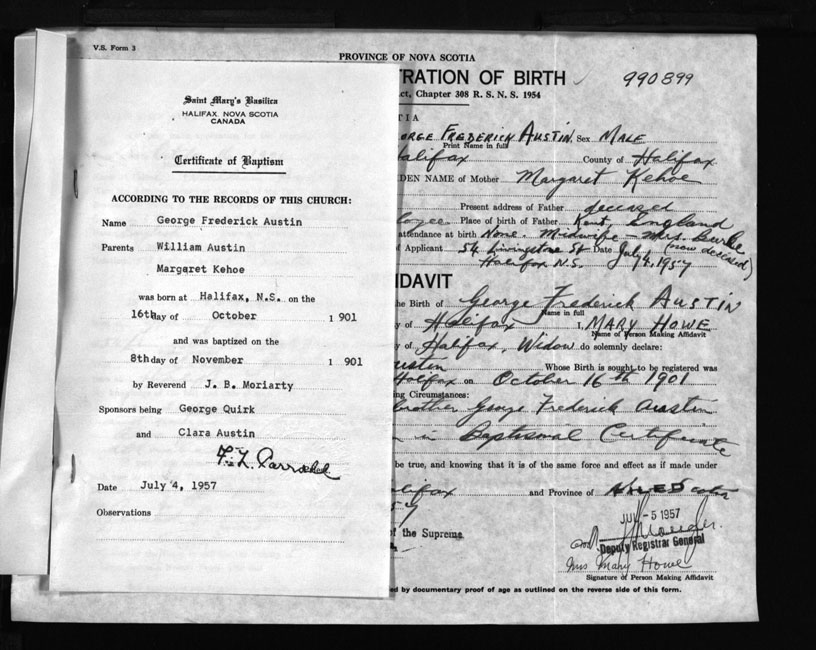 V.S. Form 3
Saint Mary's Basilica
HALIFAX NOVA SCOTIA
CANADA
Certificate of Baptism
ACCORDING TO THE RECORDS OF THIS CHURCH:
Name George Frederick Austin
Parents William Austin
Margaret Kehoe
was born at Halifax, N.S. on the
16th day of October 1901
and was baptized on the
8th day of November 1901
by Reverend J. B. Moriarty
Sponsors being George Quirk
and Clara Austin
Date July 4, 1957
Observations
PROVINCE OF NOVA SCOTIA
TRATION OF BIRTH 990899
Act, Chapter 308 R. S. N. S. 1954
TIA
ORGE FREDERICK AUSTIN Sex MALE
Print Name in full
Halifax County of Halifax
DEN NAME of Mother Margaret Kehoe
Present address of Father deceased
loyee Place of birth of Father Kent, England
attendance at birth None. Midwife - Mrs. Burke
(now deceased)
f Applicant 54 Livingstone St Date July 4, 1957
Halifax N.S.
IDAVIT
he Birth of George Frederick AUSTIN
Name in full
y of Halifax I, MARY HOWE
Name of Person Making Affidavit
y of Halifax, Widow do solemnly declare:
ustin Whose Birth is sought to be registered was
Halifax on October 16th 1901
ing Circumstances:
brother George Frederick Austin
in Baptismal Certificate
be true, and knowing that it is of the same force and effect as if made under
alifax and Province of Scotia
57
f the Supreme
JUL - 5 1957
Deputy Registrar General
Mrs Mary Howe
Signature of Person Making Affidavit
ed by documentary proof of age as outlined on the reverse side of this form.